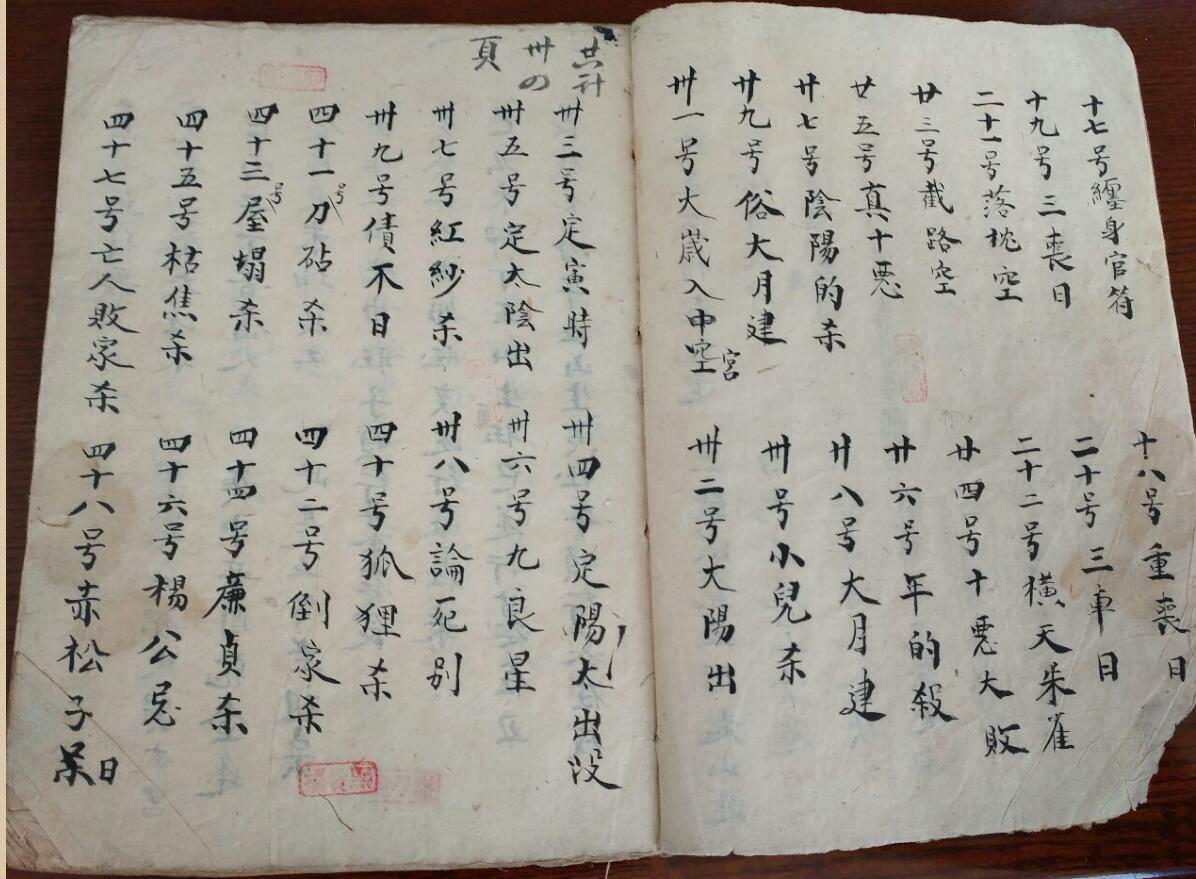 十七号纏身官符
十八号重喪日
十九号三喪日
二十号三車日
二十一号落枕空
二十二号横天朱雀
廿三号截路空
廿四号十悪大敗
廿五号真十悪
廿六号年的殺
廿七号陰陽的杀
廿八号大月建
廿九号俗大月建
卅号小兒杀
卅一号大歳入申空宮
卅二号大陽出
共計
卅の
頁
卅三号定寅時
卅四号定陽太出没
卅五号定太陰出
卅六号九良星
卅七号紅紗杀
卅八号論死别
卅九号債不日
四十号狐狸杀
四十一号刀砧杀
四十二号倒家杀
四十三号屋塌杀
四十四号廉貞杀
四十五号枯焦杀
四十六号楊公忌
四十七号亡人敗家杀
四十八号赤松子日